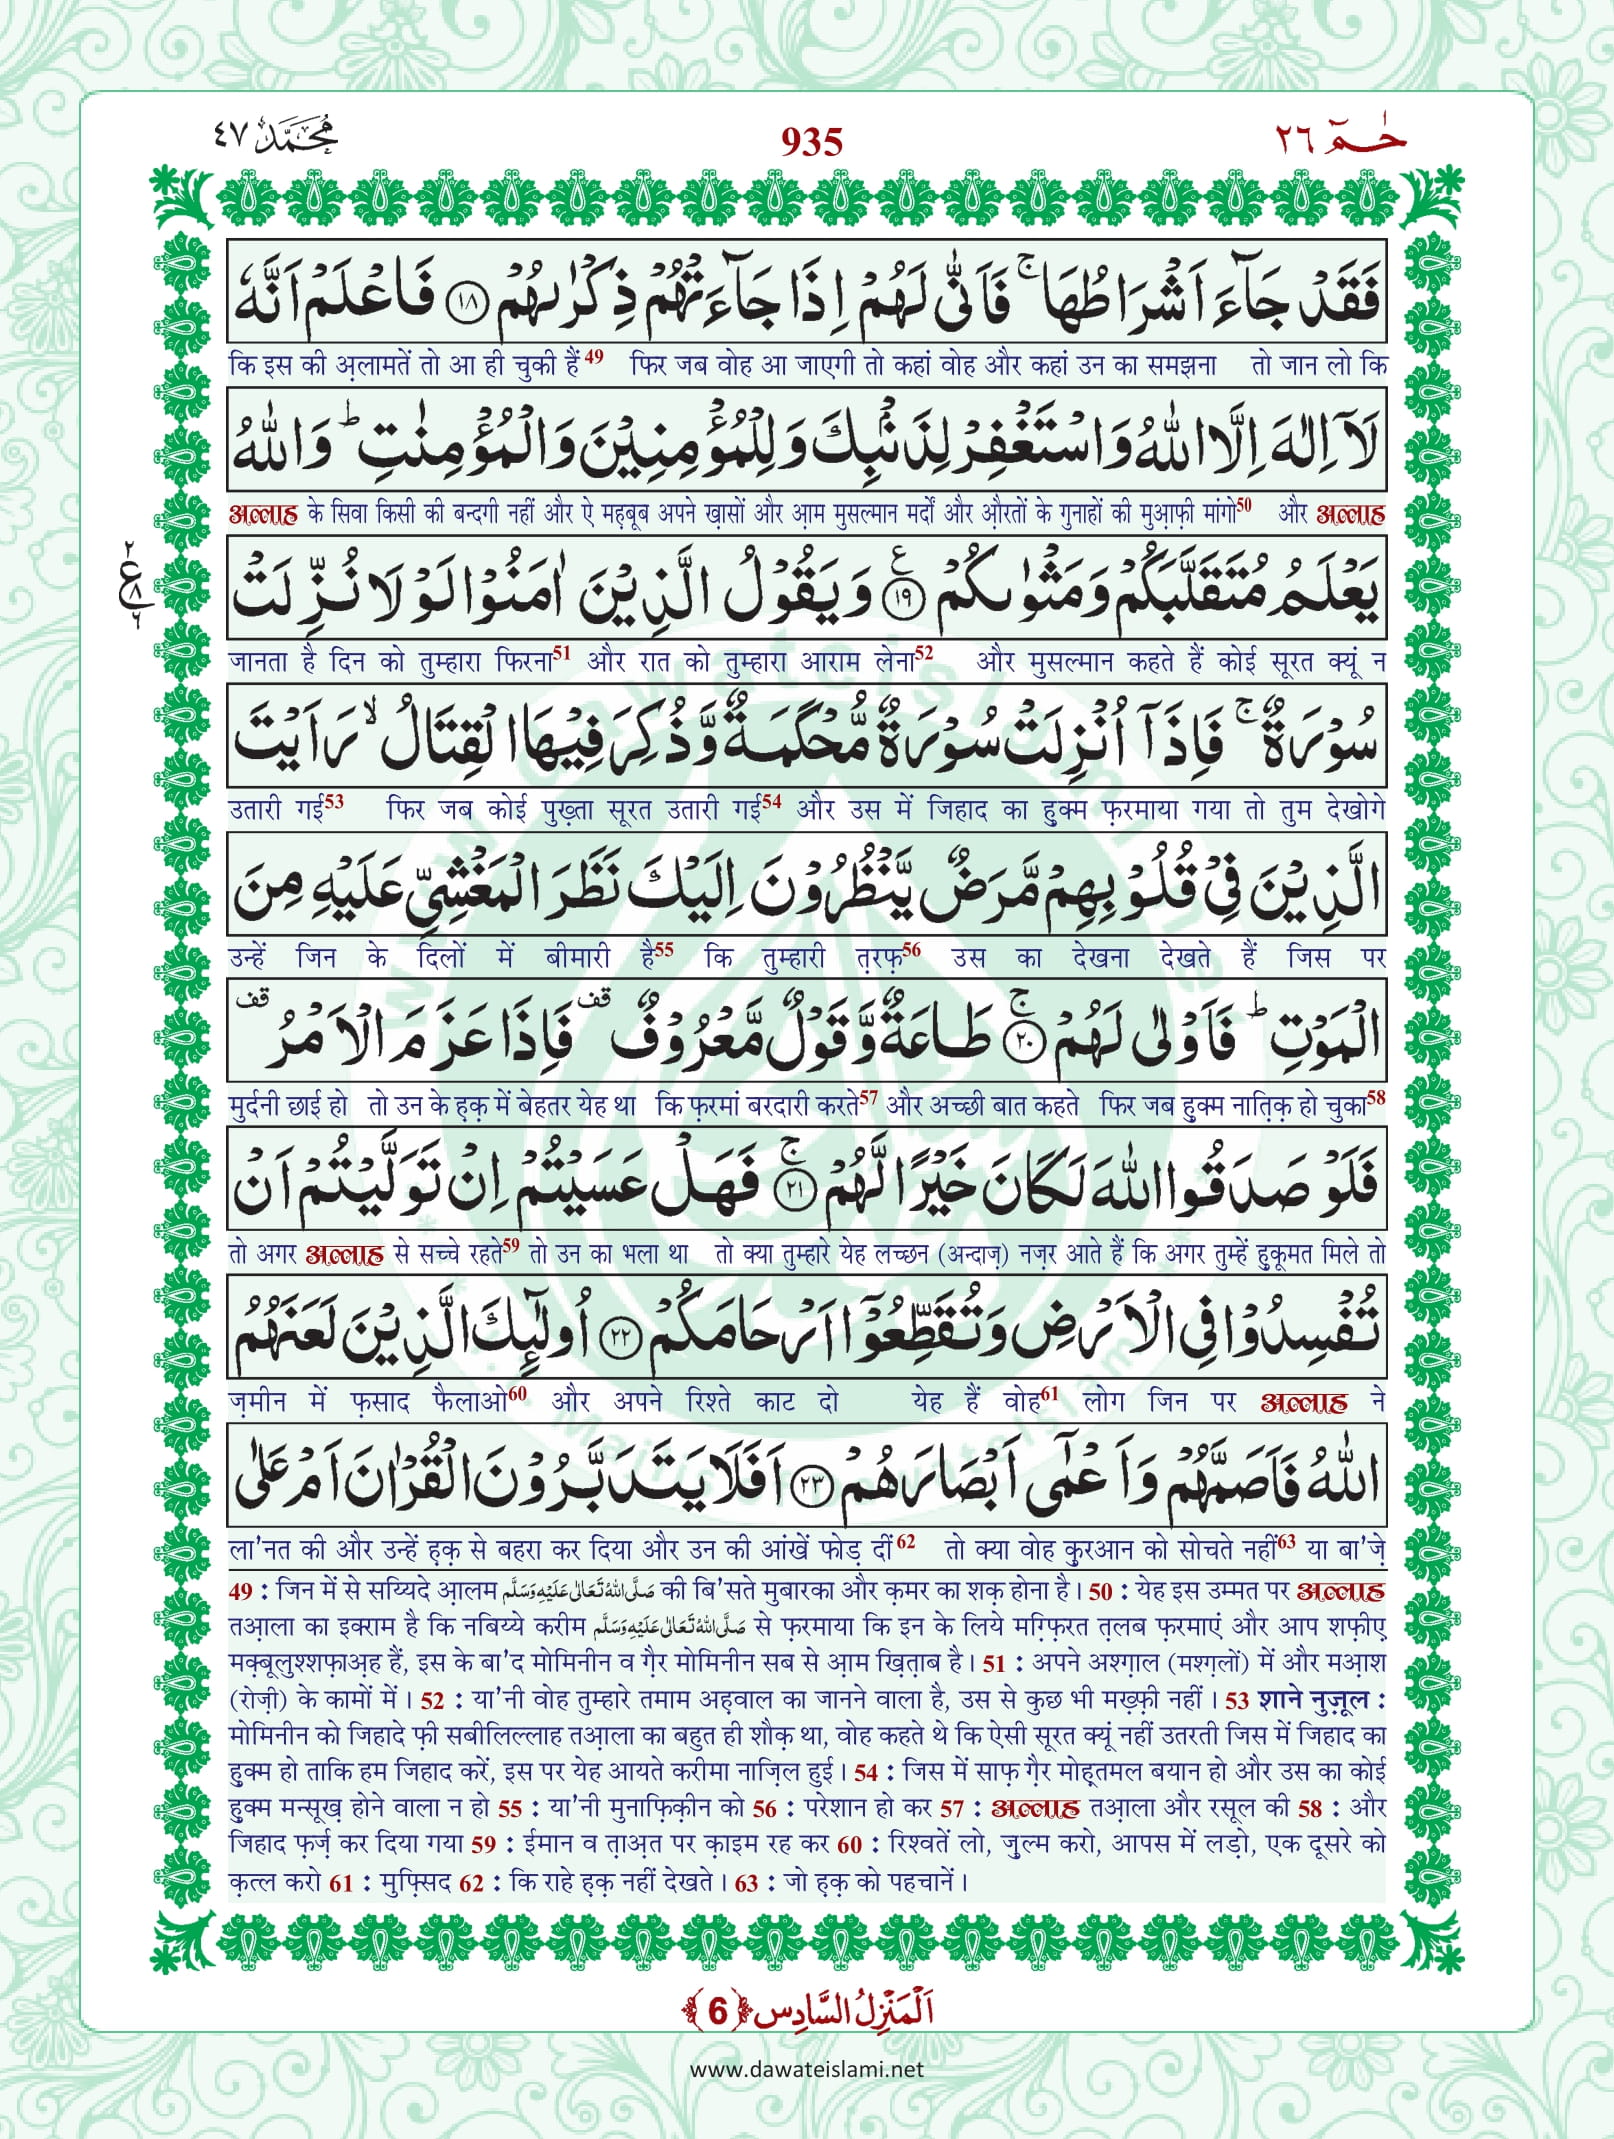 محمد ٤٧ 935 حٰمٓ ٢٦
فَقَدْ جَآءَ اَشْرَاطُهَا ۚ فَاَنّٰى لَهُمْ اِذَا جَآءَتْهُمْ ذِكْرٰىهُمْ ﴿۱۸﴾ فَاعْلَمْ اَنَّهٗ
कि इस की अ़लामतें तो आ ही चुकी हैं49 फिर जब वोह आ जाएगी तो कहां वोह और कहां उन का समझना तो जान लो कि
لَاۤ اِلٰهَ اِلَّا اللّٰهُ وَاسْتَغْفِرْ لِذَنْۢبِكَ وَلِلْمُؤْمِنِيْنَ وَالْمُؤْمِنٰتِ ؕ وَاللّٰهُ
अल्लाह के सिवा किसी की बन्दगी नहीं और ऐ मह़बूब अपने ख़ासों और आ़म मुसल्मान मर्दों और औ़रतों के गुनाहों की मुआ़फ़ी मांगो50 और अल्लाह
يَعْلَمُ مُتَقَلَّبَكُمْ وَمَثْوٰىكُمْ ﴿۱۹﴾ ع وَيَقُوْلُ الَّذِيْنَ اٰمَنُوْا لَوْلَا نُزِّلَتْ
٢ ع ٨ ٦
जानता है दिन को तुम्हारा फिरना51 और रात को तुम्हारा आराम लेना52 और मुसल्मान कहते हैं कोई सूरत क्यूं न
سُوْرَةٌ ۚ فَاِذَاۤ اُنْزِلَتْ سُوْرَةٌ مُّحْكَمَةٌ وَّذُكِرَ فِيْهَا الْقِتَالُ ۙ رَاَيْتَ
उतारी गई53 फिर जब कोई पुख़्ता सूरत उतारी गई54 और उस में जिहाद का हुक्म फ़रमाया गया तो तुम देखोगे
الَّذِيْنَ فِيْ قُلُوْبِهِمْ مَّرَضٌ يَّنْظُرُوْنَ اِلَيْكَ نَظَرَ الْمَغْشِيِّ عَلَيْهِ مِنَ
उन्हें जिन के दिलों में बीमारी है55 कि तुम्हारी त़रफ़56 उस का देखना देखते हैं जिस पर
الْمَوْتِ ؕ فَاَوْلٰى لَهُمْ ﴿۲۰﴾ ۚ طَاعَةٌ وَّقَوْلٌ مَّعْرُوْفٌ قف فَاِذَا عَزَمَ الْاَمْرُ قف
मुर्दनी छाई हो तो उन के ह़क़ में बेहतर येह था कि फ़रमां बरदारी करते57 और अच्छी बात कहते फिर जब हुक्म नातिक़ हो चुका58
فَلَوْ صَدَقُوا اللّٰهَ لَكَانَ خَيْرًا لَّهُمْ ﴿۲۱﴾ ۚ فَهَلْ عَسَيْتُمْ اِنْ تَوَلَّيْتُمْ اَنْ
तो अगर अल्लाह से सच्चे रहते59 तो उन का भला था तो क्या तुम्हारे येह लच्छन (अन्दाज़) नज़र आते हैं कि अगर तुम्हें हुकूमत मिले तो
تُفْسِدُوْا فِي الْاَرْضِ وَتُقَطِّعُوْۤا اَرْحَامَكُمْ ﴿۲۲﴾ اُولٰٓئِكَ الَّذِيْنَ لَعَنَهُمُ
ज़मीन में फ़साद फैलाओ60 और अपने रिश्ते काट दो येह हैं वोह61 लोग जिन पर अल्लाह ने
اللّٰهُ فَاَصَمَّهُمْ وَاَعْمٰۤى اَبْصَارَهُمْ ﴿۲۳﴾ اَفَلَا يَتَدَبَّرُوْنَ الْقُرْاٰنَ اَمْ عَلٰى
ला'नत की और उन्हें ह़क़ से बहरा कर दिया और उन की आंखें फोड़ दीं62 तो क्या वोह क़ुरआन को सोचते नहीं63 या बा'ज़े
49 : जिन में से सय्यिदे आ़लम صَلَّى اللّٰهُ تَعَالٰى عَلَيْهِ وَسَلَّم की बि'सते मुबारका और क़मर का शक़ होना है। 50 : येह इस उम्मत पर अल्लाह
तआ़ला का इक्राम है कि नबिय्ये करीम صَلَّى اللّٰهُ تَعَالٰى عَلَيْهِ وَسَلَّم से फ़रमाया कि इन के लिये मग़्फ़िरत त़लब फ़रमाएं और आप शफ़ीए
मक़्बूलुश्शफ़ाअ़ह हैं, इस के बा'द मोमिनीन व ग़ैर मोमिनीन सब से आ़म ख़ित़ाब है। 51 : अपने अश्ग़ाल (मश्ग़लों) में और मआ़श
(रोज़ी) के कामों में। 52 : या'नी वोह तुम्हारे तमाम अह़वाल का जानने वाला है, उस से कुछ भी मख़्फ़ी नहीं। 53 शाने नुज़ूल :
मोमिनीन को जिहादे फ़ी सबीलिल्लाह तआ़ला का बहुत ही शौक़ था, वोह कहते थे कि ऐसी सूरत क्यूं नहीं उतरती जिस में जिहाद का
हुक्म हो ताकि हम जिहाद करें, इस पर येह आयते करीमा नाज़िल हुई। 54 : जिस में साफ़ ग़ैर मोह़्तमल बयान हो और उस का कोई
हुक्म मन्सूख़ होने वाला न हो 55 : या'नी मुनाफ़िक़ीन को 56 : परेशान हो कर 57 : अल्लाह तआ़ला और रसूल की 58 : और
जिहाद फ़र्ज़ कर दिया गया 59 : ईमान व त़ाअ़त पर क़ाइम रह कर 60 : रिश्वतें लो, ज़ुल्म करो, आपस में लड़ो, एक दूसरे को
क़त्ल करो 61 : मुफ़्सिद 62 : कि राहे ह़क़ नहीं देखते। 63 : जो ह़क़ को पहचानें।
اَلْمَنْزِلُ السَّادِس ﴿6﴾
www.dawateislami.net